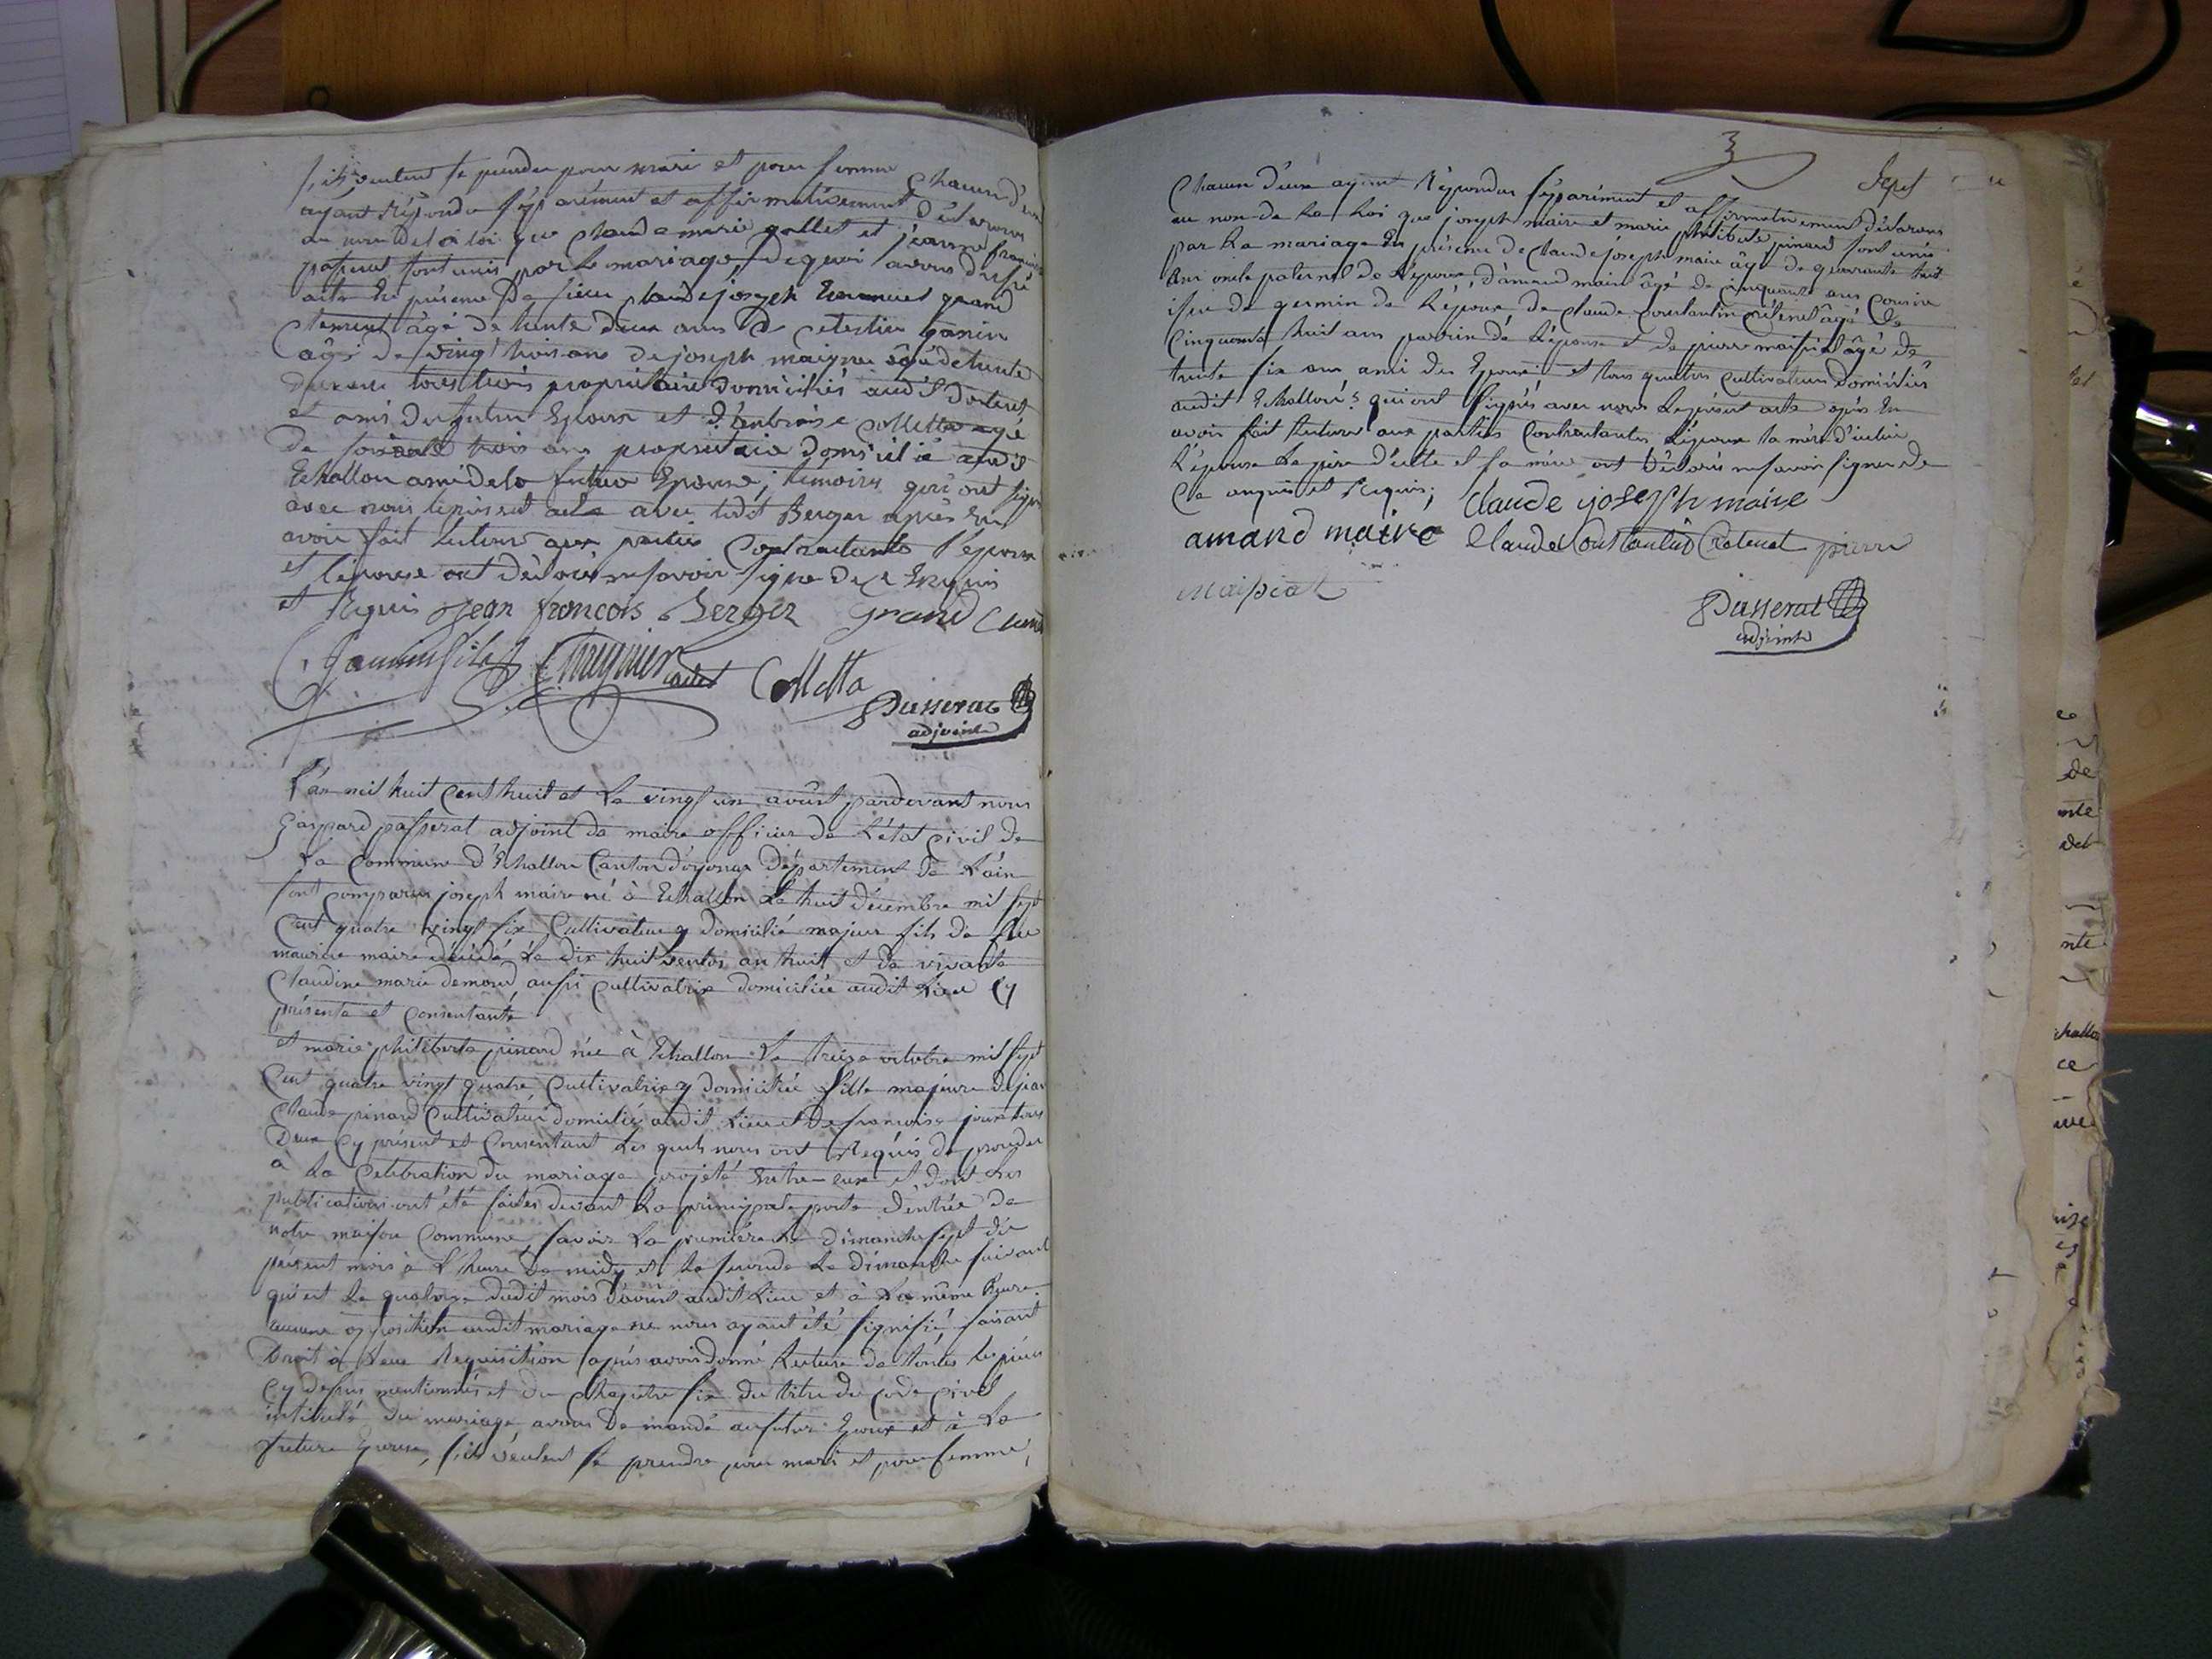 s'ils veulent se prendre pour mari et pour femme Chacun d'eux
ayant répondu séparément et affirmativement déclarons
au nom de la loi que Claude marie gallet et jeanne françoise
passerat sont unis par le mariage, de quoi avons dressé
acte En présence De sieur Claude joseph Emanuel grand
Clement âgé de trente deux ans De Celestin ganin
âgé de vingt trois ans de joseph maigne âgé de trente
deux ans tous trois propriétaire domiciliés audit dortent
et amis du futur Epoux et d'Ambroise Colletta agé
De soixante trois ans propriétaire domicilié audit
Echallon ami de la future Epouse; témoins qui ont signé
avec nous le présent acte avec ledit Berger après En
avoir fait lecture aux parties Contractants l'époux
et l'épouse ont déclaré ne savoir signe De Ce Enquis
et Requis Jean françois Berger grand Clement
maignier cadet Colletta
Passerat
adjoint
L'an mil huit Cent huit et Le vingt un août pardevant nous
Gaspard passerat adjoint de maire officier de L'état Civil de
La Commune d'Echallon Canton d'oyonax Département De L'ain
sont Comparus joseph maire né à Echallon Le huit décembre mil sept
Cent quatre vingt six, Cultivateur y domicilié majeur fils de feu
maurice maire décédé Le dix huit ventos an huit et De vivante
Claudine marie demond, aussi Cultivatrix domiciliée audit Lieu Cy
présente et Consentante
et marie philiberte pinard née à Echallon Le treize octobre mil sept
Cent quatre vingt quatre Cultivatrix y domiciliée fille majeure de jean
Claude pinard Cultivateur domicilié audit Lieu et De françoise joux tous
Deux Cy présent et Consentant Les quels nous ont Requis de proceder
à La Celebration du mariage projeté Entre eux et dont les
publications ont été faites devant La principale porte d'entrée De
notre maison Commune, savoir La première Le dimanche sept du
présent mois à L'heure De midy et La seconde Le dimanche suivant
qui est Le quatorze dudit mois d'aoust audit Lieu et à La même heure.
aucune opposition audit mariage ne nous ayant été signifié, faisant
Droit à Leur Requisition après avoir donné Lecture de toutes les pièces
Cy dessus mentionnés et du Chapitre six du titre du Code Civil
intitulé du mariage, avons Demandé au futur Epoux et à La
future Epouse, s'ils veulent se prendre pour mari et pour femme,
Sept
Chacun d'eux ayant Répondu séparément et affirmativement déclarons
au nom de La Loi que joseph maire et marie philiberte pinard sont unis
par Le mariage En présence de Claude joseph maire âgé de quarante huit
ans oncle paternel de L'époux, d'amand maire âgé de cinquante ans Cousin
issu de germin de L'époux, de Claude Constantin Crétenet âgé De
Cinquante huit ans parrin de L'épouse et de pierre maissiat âgé de
trente six ans ami des Epoux et tous quatre Cultivateurs domiciliés
audit Echallon; qui ont signés avec nous Le présent acte après En
avoir fait Lecture aux parties Contractantes L'époux sa mère d'icelui
L'épouse Le père d'icelle et sa mère ont Déclaré ne savoir signer de
Ce enquis et Requis; Claude joseph maire
amand maire Claude Constantin Cretenet pierre
maissiat
Passerat
adjoint